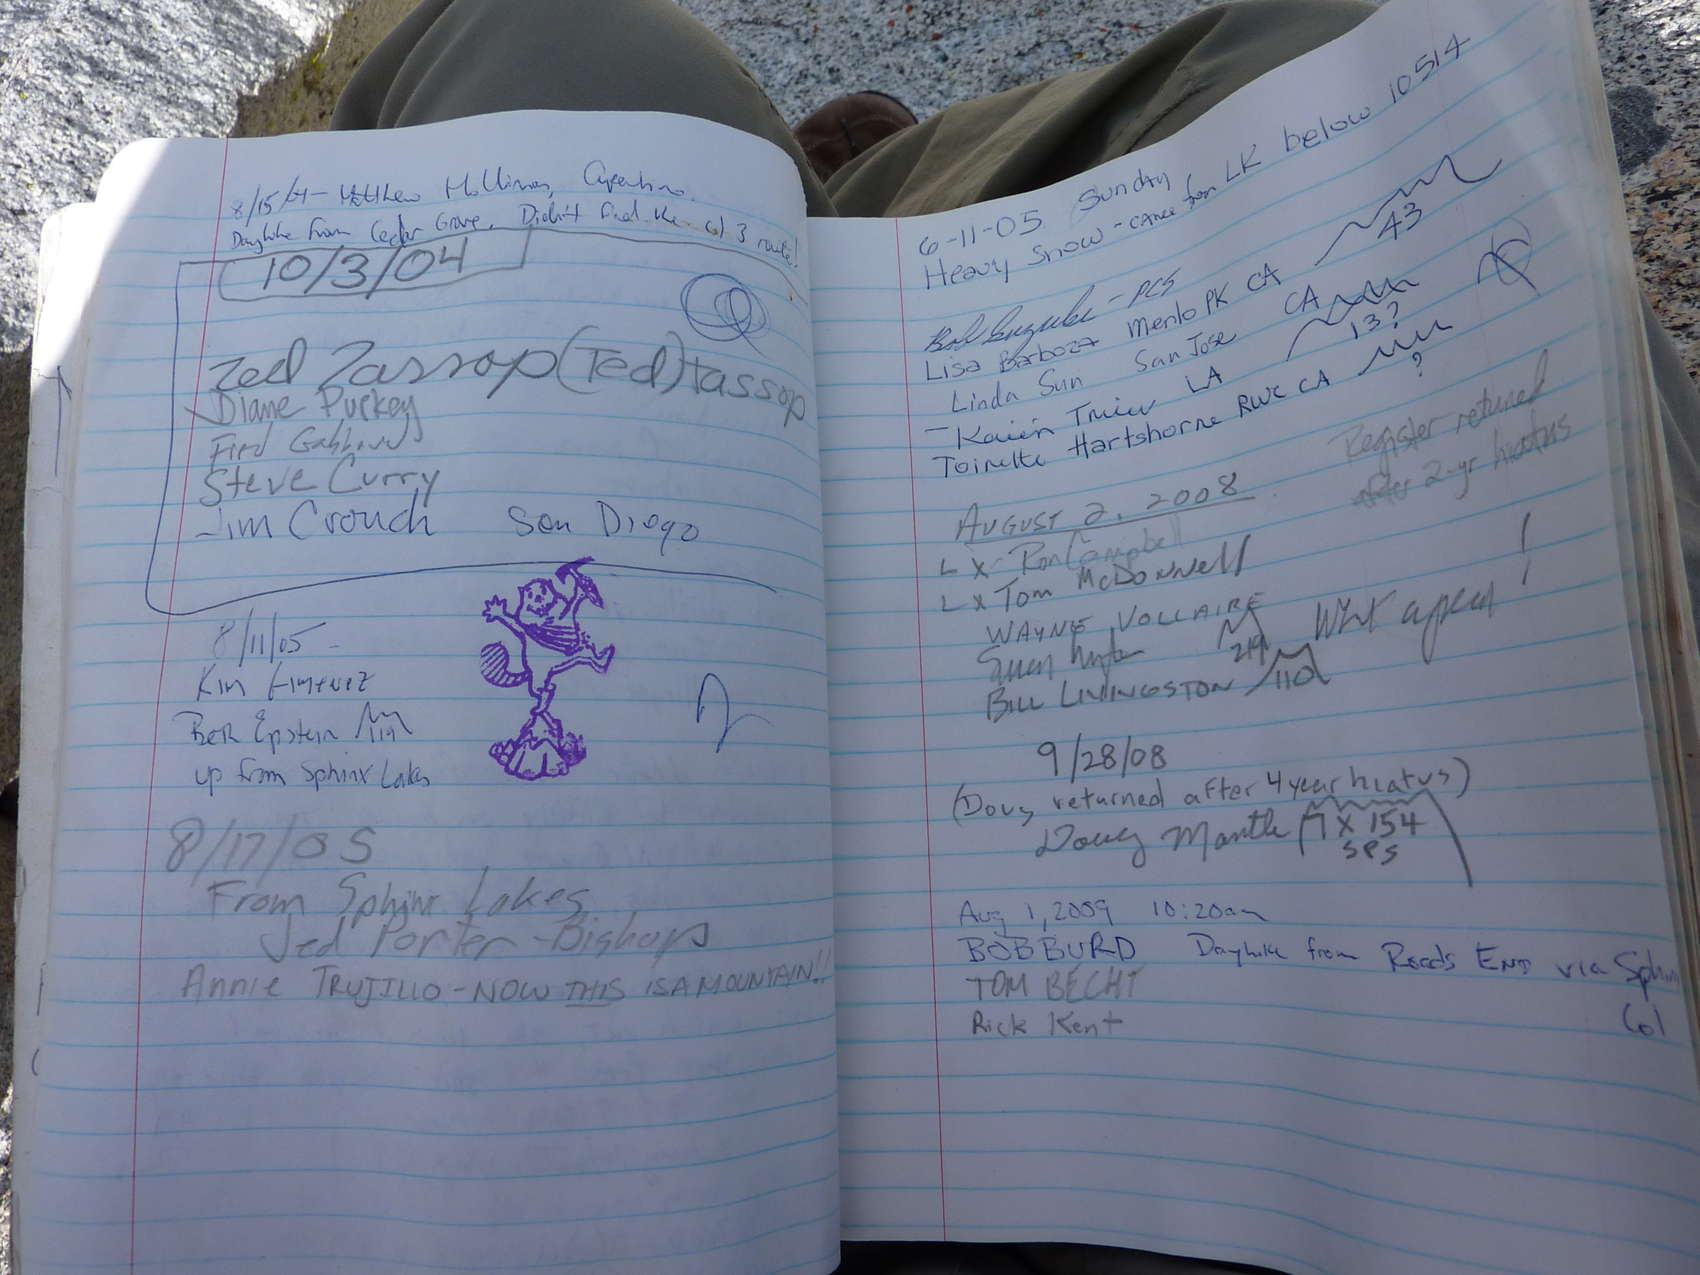 8/15/04 - Matthew Holliman, Cupertino.
Dayhike from Cedar Grove. Didn't find the cl 3 route!
10/3/04
Zed Zassop (Ted) tassop
Diane Purkey
Fred
Steve Curry
Jim Crouch San Diego
8/11/05 -
Kim Gimenez
Epstein 119
up from Sphinx Lakes
8/17/05
From Sphinx Lakes
Jed Porter - Bishop
Annie Trujillo - NOW THIS IS A MOUNTAIN!!
6-11-05 Sunday
Heavy Snow - came from LK below 10514
Bob - PCS
Lisa Barboza Menlo PK CA 43
Linda Sun San Jose CA
- LA 13?
Toinette Hartshorne RWC CA ?
Register retuned
after 2-yr hiatus
AUGUST 2, 2008
L x Ron Campbell
L x Tom McDonnell
WAYNE VOLLAIRE
What a peak!
BILL LIVINGSTON 110
9/28/08
(Doug returned after 4 year hiatus)
Doug Mantle 7 X 154
SPS
Aug 1, 2009 10:20am
BOB BURD Dayhike from Roads End via Sphinx
Col
TOM BECHT
Rick Kent